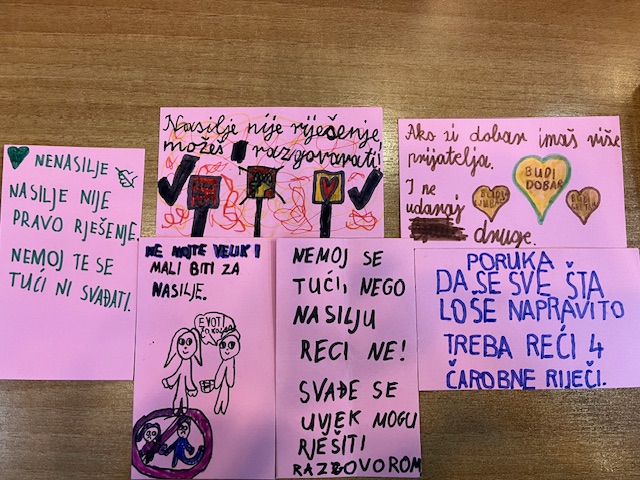 NENASILJE
NASILJE NIJE
PRAVO RJEŠENJE.
NEMOJ TE SE
TUĆI NI SVAĐATI.
Nasilje nije riješenje
možeš razgovarati!
Ako si dobar imaš više
prijatelja.
I ne
udaraj
druge.
BUDI
DOBAR
NE MOJTE VELIKI
MALI BITI ZA
NASILJE.
NEMOJ SE
TUĆI, NEGO
NASILJU
RECI NE!
SVAĐE SE
UVJEK MOGU
RJEŠITI
RAZGOVOROM
PORUKA
DA SE SVE ŠTA
LOŠE NAPRAVITO
TREBA REĆI 4
ČAROBNE RIJEČI.